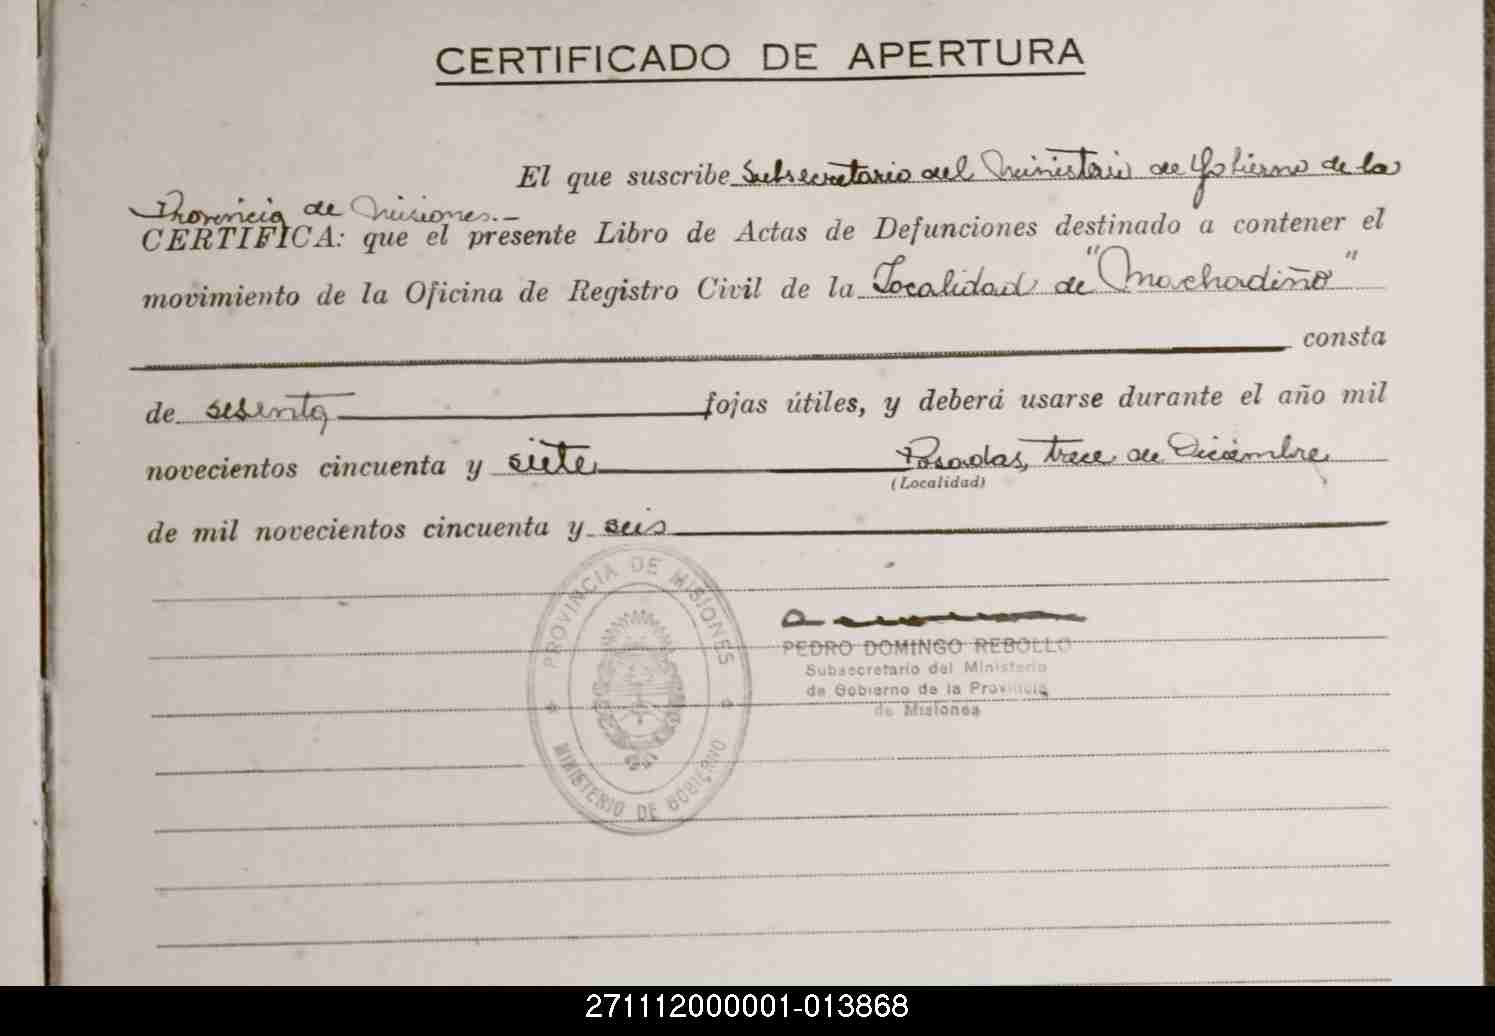 CERTIFICADO DE APERTURA
El que suscribe Subsecretario del Ministerio de Gobierno de la
Provincia de Misiones.-
CERTIFICA: que el presente Libro de Actas de Defunciones destinado a contener el
movimiento de la Oficina de Registro Civil de la Localidad de "Machadiño"
consta
de sesenta fojas útiles, y deberá usarse durante el año mil
novecientos cincuenta y siete Posadas, trece de Diciembre
(Localidad)
de mil novecientos cincuenta y seis
PROVINCIA DE MISIONES
MINISTERIO DE GOBIERNO
PEDRO DOMINGO REBOLLO
Subsecretario del Ministerio
de Gobierno de la Provincia
de Misiones
271112000001-013868